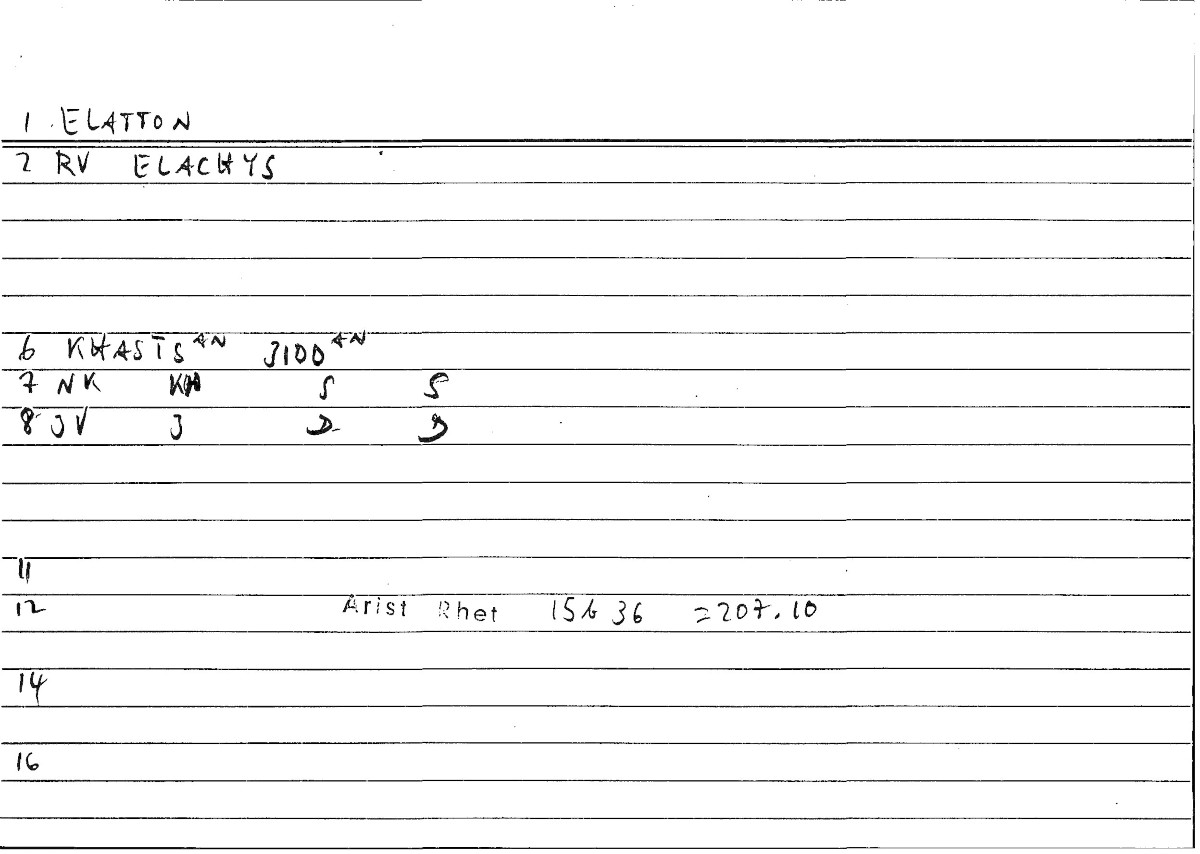 1 ELATTON
2 RV ELACHYS
6 KHASTS AN JIDD AN
7 NK KH S S
8 JV J D D
11
12 Arist Rhet 15b 36 =207.10
14
16